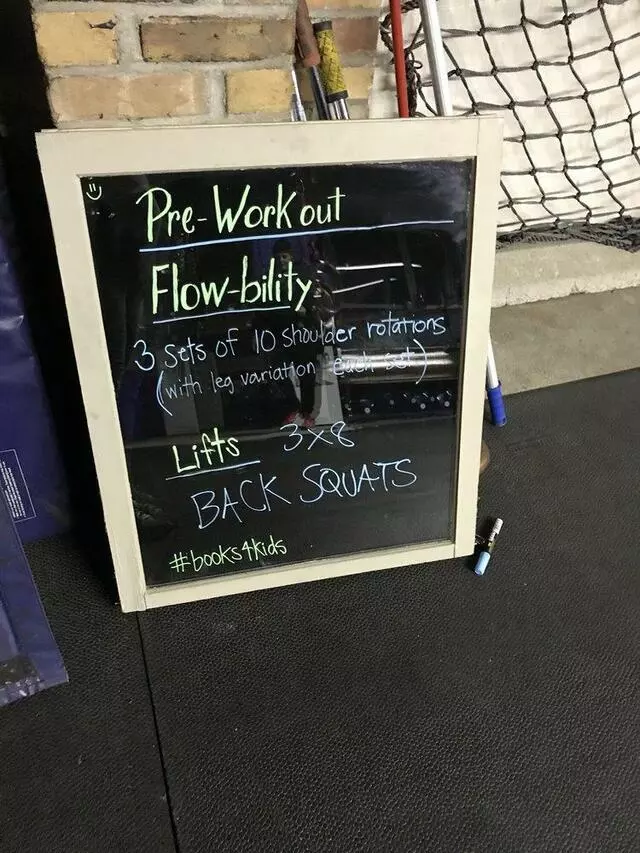 Pre-Workout
Flow-bility
3 sets of 10 shoulder rotations
(with leg variation each set)
Lifts 3x8
BACK SQUATS
#books4kids